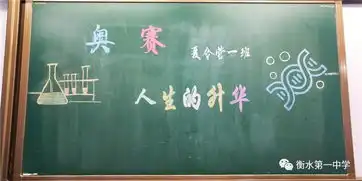 奥赛
夏令营一班
人生的升华
衡水第一中学